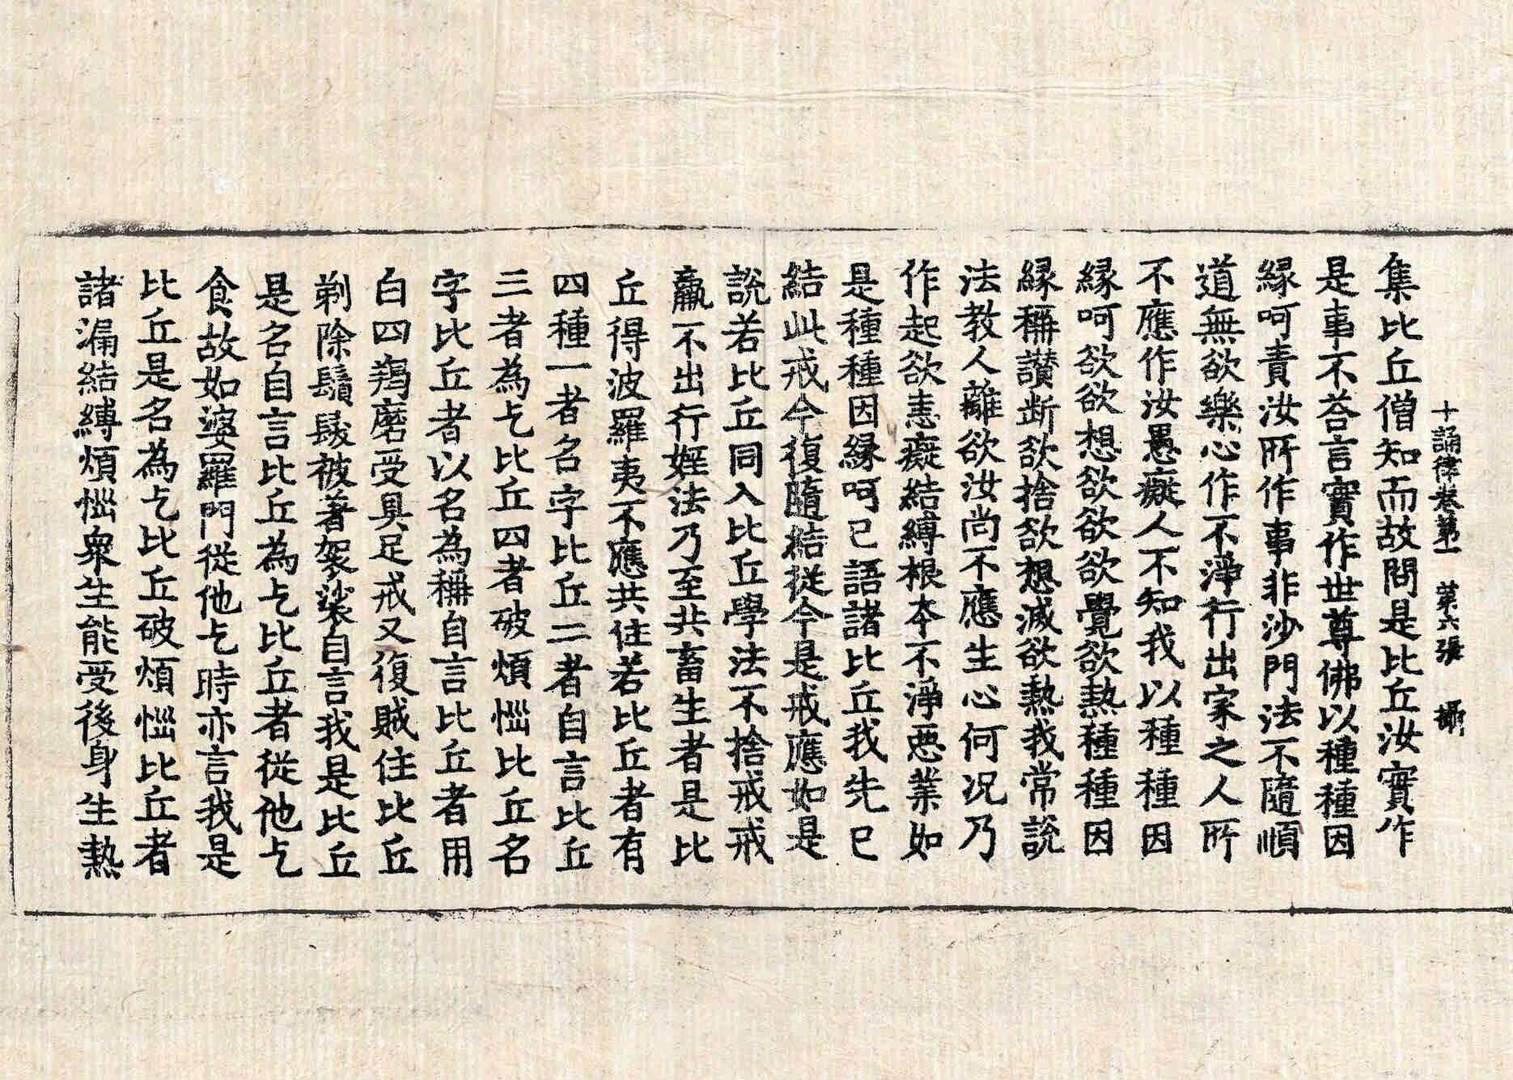 十誦律卷第一　第六張　攝
集比丘僧知而故問是比丘汝實作
是事不荅言實作世尊佛以種種因
緣呵責汝所作事非沙門法不隨順
道無欲樂心作不淨行出家之人所
不應作汝愚癡人不知我以種種因
緣呵欲欲想欲欲欲覺欲熱種種因
緣稱讃斷欲捨欲想滅欲熱我常說
法教人離欲汝尚不應生心何況乃
作起欲恚癡結縛根本不淨惡業如
是種種因緣呵已語諸比丘我先已
結此戒今復隨結從今是戒應如是
說若比丘同入比丘學法不捨戒戒
羸不出行婬法乃至共畜生者是比
丘得波羅夷不應共住若比丘者有
四種一者名字比丘二者自言比丘
三者為乞比丘四者破煩惱比丘名
字比丘者以名為稱自言比丘者用
白四羯磨受具足戒又復賊住比丘
剃除鬚髮被著袈裟自言我是比丘
是名自言比丘為乞比丘者從他乞
食故如婆羅門從他乞時亦言我是
比丘是名為乞比丘破煩惱比丘者
諸漏結縛煩惱衆生能受後身生熱